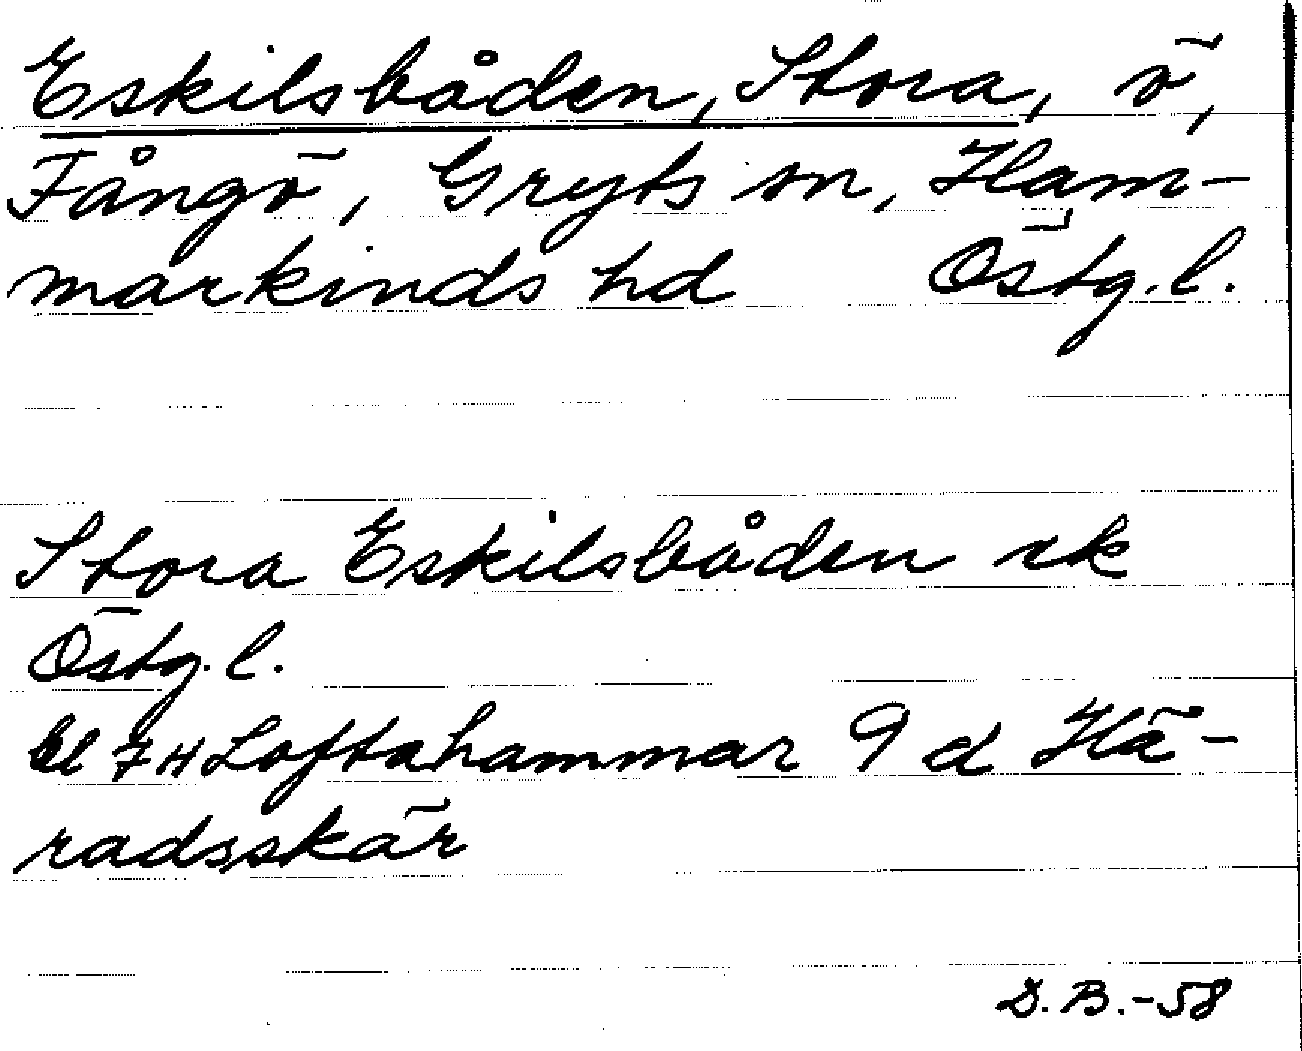 Eskilsbåden, Stora, ö,
Fångö, Gryts sn, Ham-
markinds hd Östg.l.
Stora Eskilsbåden sk
Östg.l.
bl 7H Loftahammar 9 d Hä-
radsskär
D.B.-58